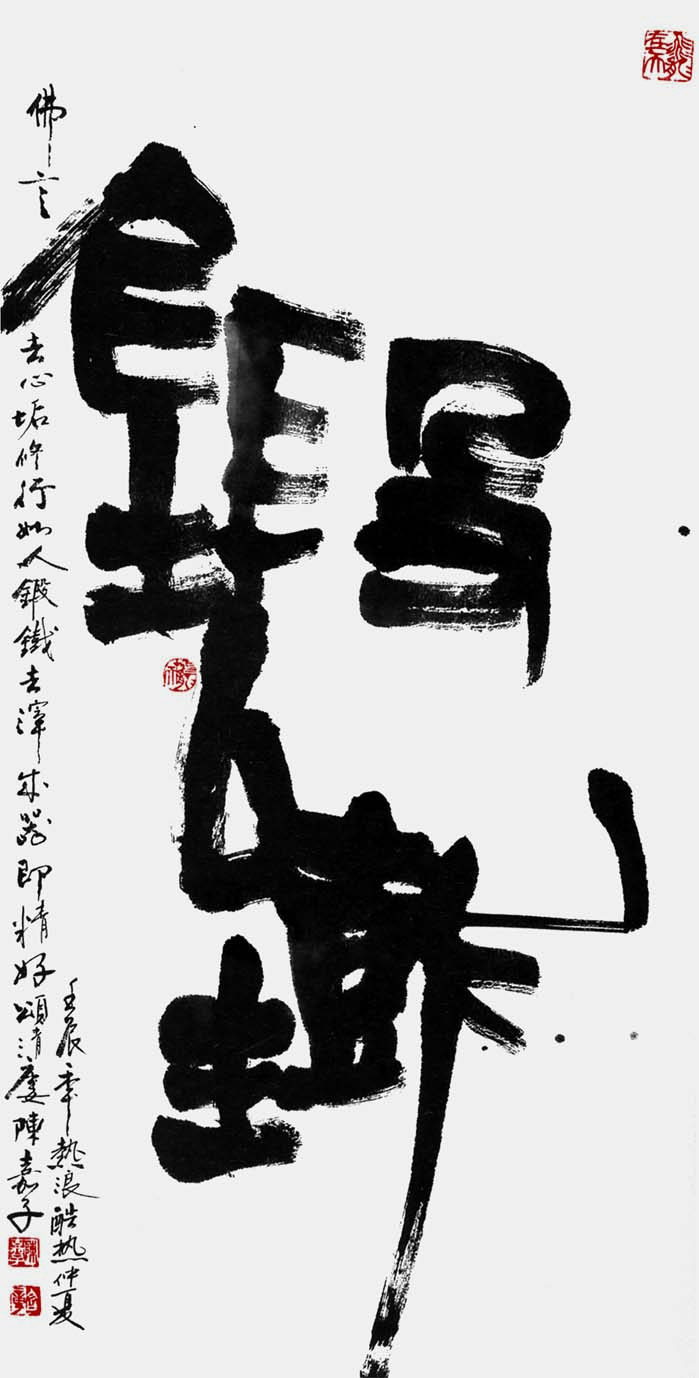 鍛鐵
佛言去心垢修行如人鍛鐵去滓成器即精好頌清廈陳嘉子
壬辰年熱浪酷热仲夏